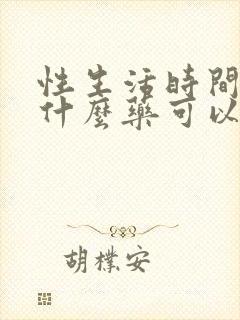 性生活時間
什麼藥可以
胡樸安